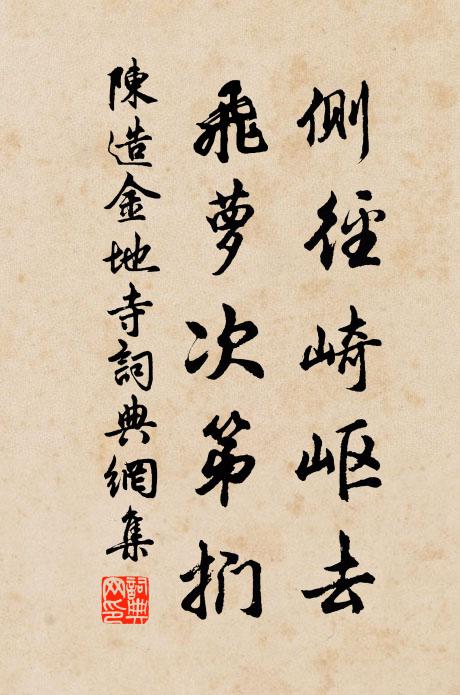 側徑崎嶇去
飛萝次第捫
陳造金地寺詞典網集
詞典
网印